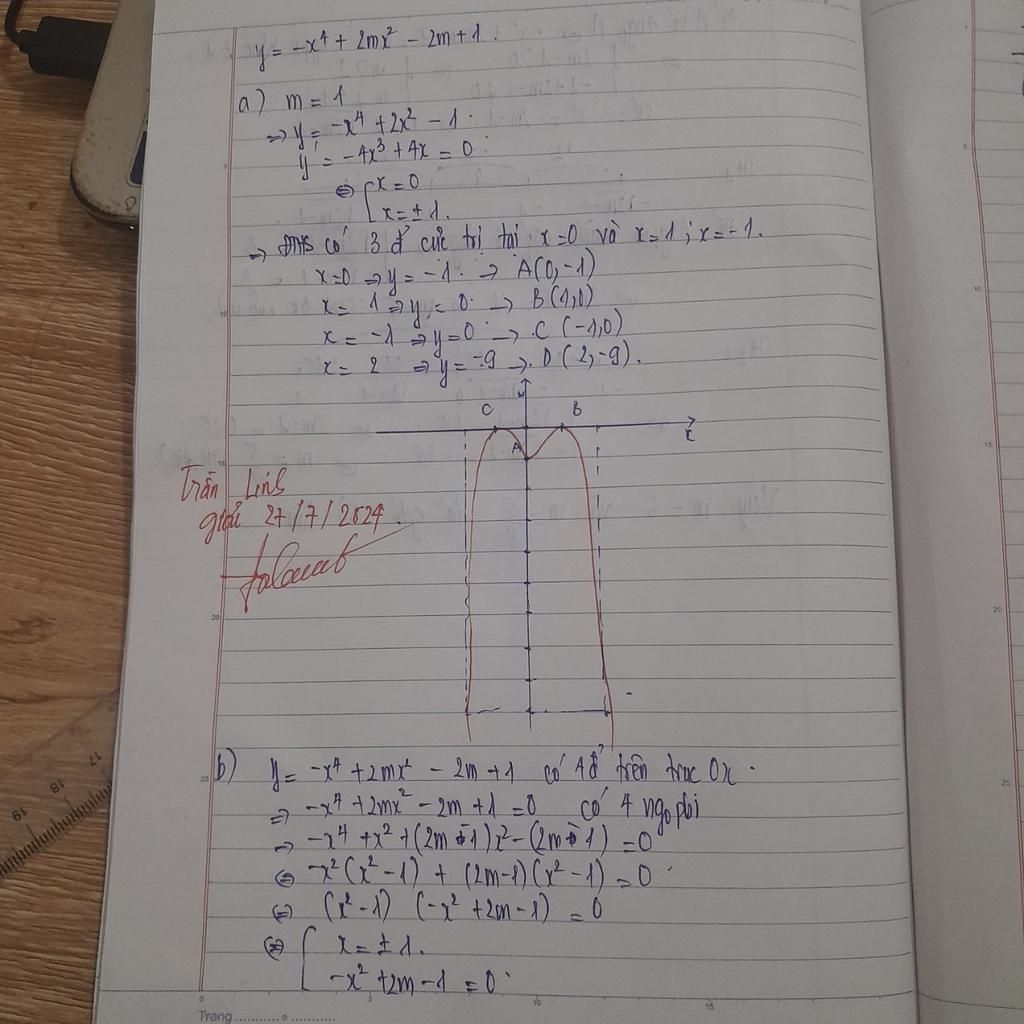 y = -x⁴ + 2mx² - 2m + 1.
a) m = 1
⇒ y = -x⁴ + 2x² - 1.
y' = -4x³ + 4x = 0
⇔ [ x = 0
x = ± 1.
→ ĐHS có 3 đ' cực trị tại x=0 và x=1 ; x=-1.
x=0 ⇒ y = -1. → A(0,-1)
x = 1 ⇒ y = 0. → B(1,0)
x = -1 ⇒ y=0 → C(-1,0)
x = 2 ⇒ y = -9 → D(2,-9).
C B
x
A
Trần Linh
giải 27/7/2024.
b) y = -x⁴ + 2mx² - 2m + 1 có 4đ' trên trục Ox.
⇒ -x⁴ + 2mx² - 2m + 1 = 0 có 4 ngo pbi
→ -x⁴ + x² + (2m - 1)x² - (2m - 1) = 0
⇔ -x²(x² - 1) + (2m-1)(x² - 1) = 0
⇔ (x² - 1) (-x² + 2m - 1) = 0
⇔ [ x = ± 1.
-x² + 2m - 1 = 0
Trang
5
10
15
20
25
0
5
10
15
5
15
20
25
17
18
19